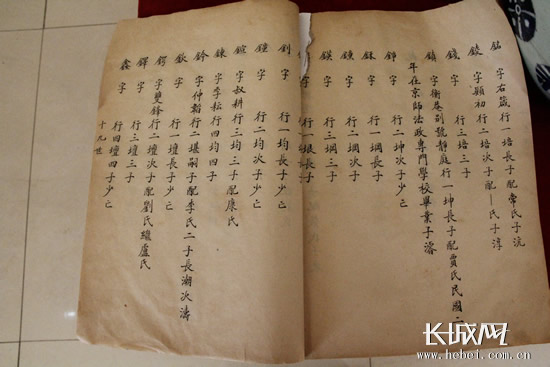 銘 字右箴 行一培長子配常氏子沆
錂 字顯初 行二培次子配一氏子淳
錢 字 行三培三子
鎮 字衡菴別號靜庭行一坤長子配賈氏民國二
年在京師法政專門學校畢業子濬
錚 字 行二坤次子少亡
鉢 字 行一堈長子
鍊 字 行二堈次子
鍈 字 行三堈三子
行一垠長子
釗 字 行一均長子少亡
鐘 字 行二均次子少亡
鍹 字叔耕 行三均三子配康氏
鋉 字季耘 行四均四子
鈐 字仲韜 行二堪嗣子配李氏二子長湖次濤
欽 字 行一壇長子少亡
鍔 字雙鋒 行二壇次子配劉氏繼盧氏
鐸 字 行三壇三子
鑫 字 行四壇四子少亡
十九世
长城网
www.hebei.com.cn